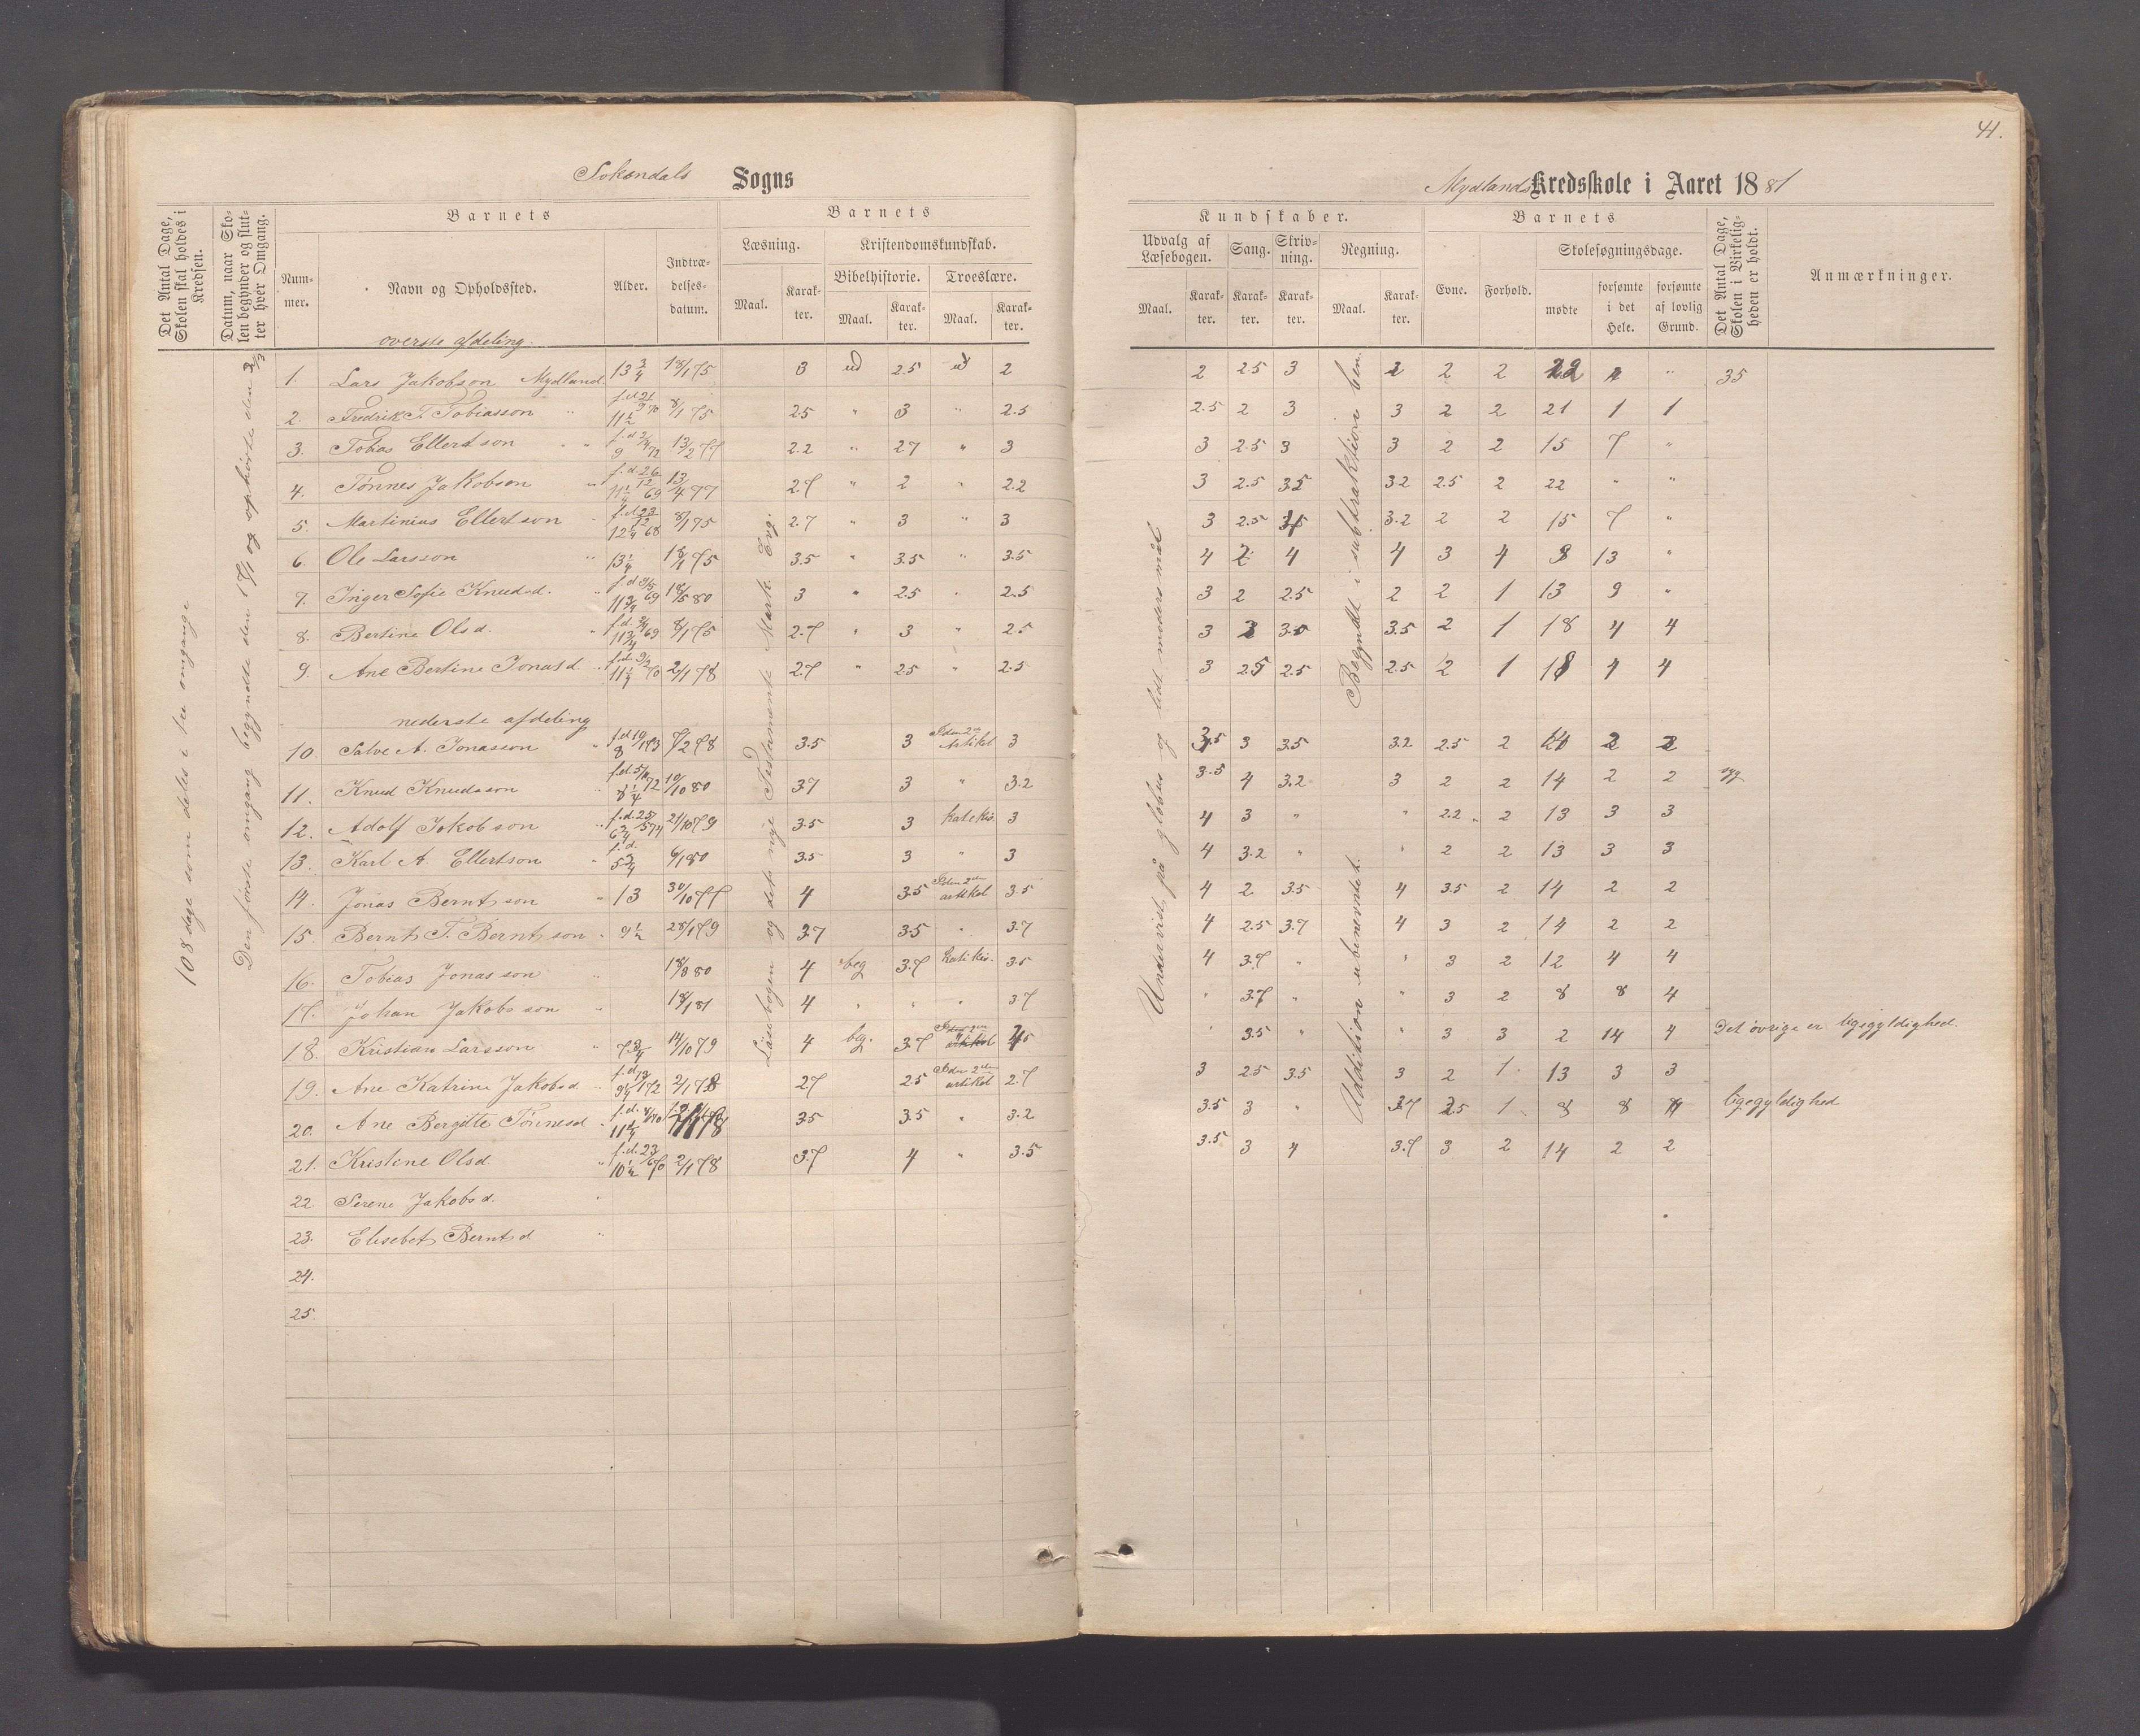 41.
Sokendals Sogns
Mydlands Kredsskole i Aaret 1881
Det Antal Dage, Skolen skal holdes i Kredsen.
Datum, naar Skolen begynder og slutter hver Omgang.
Barnets
Nummer.
Navn og Opholdssted.
Alder.
Indtrædelsesdatum.
Barnets
Læsning.
Maal.
Karakter.
Kristendomskundskab.
Bibelhistorie.
Maal.
Karakter.
Troeslære.
Maal.
Karakter.
Kundskaber.
Udvalg af Læsebogen.
Maal.
Karakter.
Sang.
Karakter.
Skrivning.
Karakter.
Regning.
Maal.
Karakter.
Barnets
Evne.
Forhold.
Skolesøgningsdage.
mødte
forsømte i det Hele.
forsømte af lovlig Grund.
Det Antal Dage, Skolen i Virkeligheden er holdt.
Anmærkninger.
108 dage som deles i tre omgange
Den første omgang begyndte den 17/1 og ophørte den
Læsebogen og det nye Testamente Mark. Evg.
Undervist på globus og lidt modersmål
Begyndt i subtraktion i ben.
Addition ubenevnte t.
overste afdeling.
1. Lars Jakobson Mydland. 13 3/4 18/1 75 3 ud 2.5 ud 2 2 2.5 3 2 2 2 22 " 35
2. Fredrik T. Tobiasson " 11 1/2 8/1 75 2.5 " 3 " 2.5 2.5 2 3 3 2 2 21 1 1
3. Tobias Ellertson " " 9 13/2 77 2.2 " 2.7 " 3 3 2.5 3 3 2 2 15 7 "
4. Tønnes Jakobson " f.d. 26/12 69 11 1/4 13/4 77 2.7 " 2 " 2.2 3 2.5 3.5 3.2 2.5 2 22 " "
5. Martinius Ellertson " f.d. 23/12 68 12 1/4 8/1 75 2.7 " 3 " 3 3 2.5 3.2 2 2 15 7 "
6. Ole Larsson " 13 1/4 75 3.5 " 3.5 " 3.5 4 2 4 4 3 4 9 13 "
7. Inger Sofie Knudsd. " 11 3/4 18/5 80 3 " 2.5 " 2.5 3 2 2.5 2 2 1 13 9 "
8. Bertine Olsd. " 11 3/4 8/1 75 2.7 " 3 " 2.5 3 3.5 2 1 18 4 4
9. Ane Bertine Jonasd. " 11 1/4 2/1 78 2.7 " 2.5 " 2.5 3 2.5 2.5 2.5 2 1 18 4 4
nederste afdeling
10. Salve A. Jonasson " 8 7/2 78 3.5 3 I den 2den Artikel 3 3.5 3 3.5 3.2 2.5 2 2 2
11. Knud Knudsson " 8 1/4 19/10 80 3.7 3 " 3.2 3.5 4 3.2 3 2 2 14 2 2 syg
12. Adolf Jakobson " 6 3/4 21/10 79 3.5 3 katekis. 3 4 3 " " 2.2 2 13 3 3
13. Karl A. Ellertson " f.d. 5 3/4 6/1 80 3.5 3 " 3 4 3.2 " " 2 2 13 3 3
14. Jonas Berntsson " 13 30/10 77 4 3.5 I den 2den artikel 3.5 4 2 3.5 4 3.5 2 14 2 2
15. Bernt T. Berntsson " 9 1/2 28/1 79 3.7 3.5 " 3.7 4 2.5 3.7 4 3 2 14 2 2
16. Tobias Jonasson " 18/3 80 4 beg 3.7 katikis. 3.5 4 3.7 " " 3 2 12 4 4
17. Johan Jakobsson " 18/1 81 4 " " " 3.7 " 3.7 " " 3 2 8 8 4
18. Kristian Larsson " 7 3/4 14/10 79 4 beg. 3.7 " " 3.5 " " 3 3 2 14 4 Det øvrige er ligegyldighed.
19. Ane Katrine Jakobsd. " 9 1/4 2/1 78 2.7 2.5 I den 2den artikel 2.7 3 2.5 3.5 3 2 1 13 3 3
20. Ane Bergitte Tønnesd " 11 1/4 3.5 3.5 " 3.2 3.5 3 " 3.7 2.5 1 8 8 4 ligegyldighed
21. Kristine Olsd. " f.d. 23/6 70 10 1/2 2/1 78 3.7 4 " 3.5 3.5 3 4 3.7 3 2 14 2 2
22. Serene Jakobsd. "
23. Elisebet Berntsd "
24.
25.